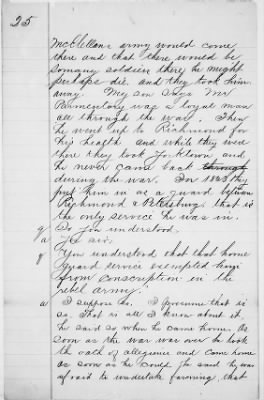 25
McClellans army would come
there and that there would be
so many soldiers there he might
perhaps die, and they took him
away. My son says Mr
was a loyal man
all through the war. Then
he went up to Richmond for
his health and while they were
there they took Yorktown and
he never came back through
during the war. In they
put them in as a guard between
Richmond & Petersburg that is
the only service he was in.
q So you understood
a Yes sir.
q You understood that that home
guard service exempted him
from conscription in the
rebel army?
a I suppose so. I presume that is
so. That is all I know about it,
he said so when he came home. As
soon as the war was over he took
the oath of allegiance and came home
as soon as he could. he said he was
afraid to undertake farming that